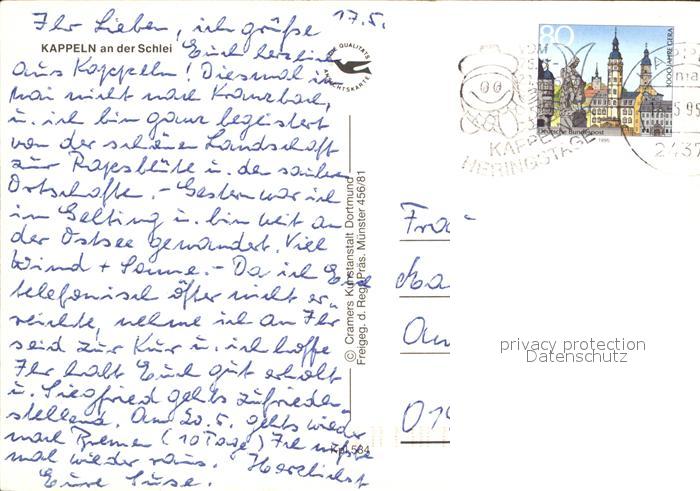 17.5.
Ihr Lieben, ich grüße
KAPPELN an der Schlei
Euch herzlich
aus Kappeln! Diesmal im
Mai nicht nach Kranzbach,
u. ich bin ganz begeistert
von der schönen Landschaft
zur Rapsblüte u. den saubren
Ortschaften. - Gestern war ich
in Gelting u. bin weit an
der Ostsee gewandert. Viel
Wind + Sonne. - Da ich Euch
telefonisch öfter nicht er-
reichte, nehme ich an Ihr
seid zur Kur u. ich hoffe
Ihr habt Euch gut erholt
u. Siegfried gehts zufrieden-
stellend. Am 20.5. gehts wieder
nach Bremen (10 Tage) Ihr müßte
mal wieder raus. Herzlichst
Eure Suse.
QUALITÄTS
ANSICHTSKARTE
© Cramers Kunstanstalt Dortmund
Freigeg. d. Reg. Präs. Münster 456/81
Kpl 534
80
1000 JAHRE GERA
Deutsche Bundespost
1995
KAPPE
HERINGSTAGE
5.95
2437
Frau
An
privacy protection
Datenschutz